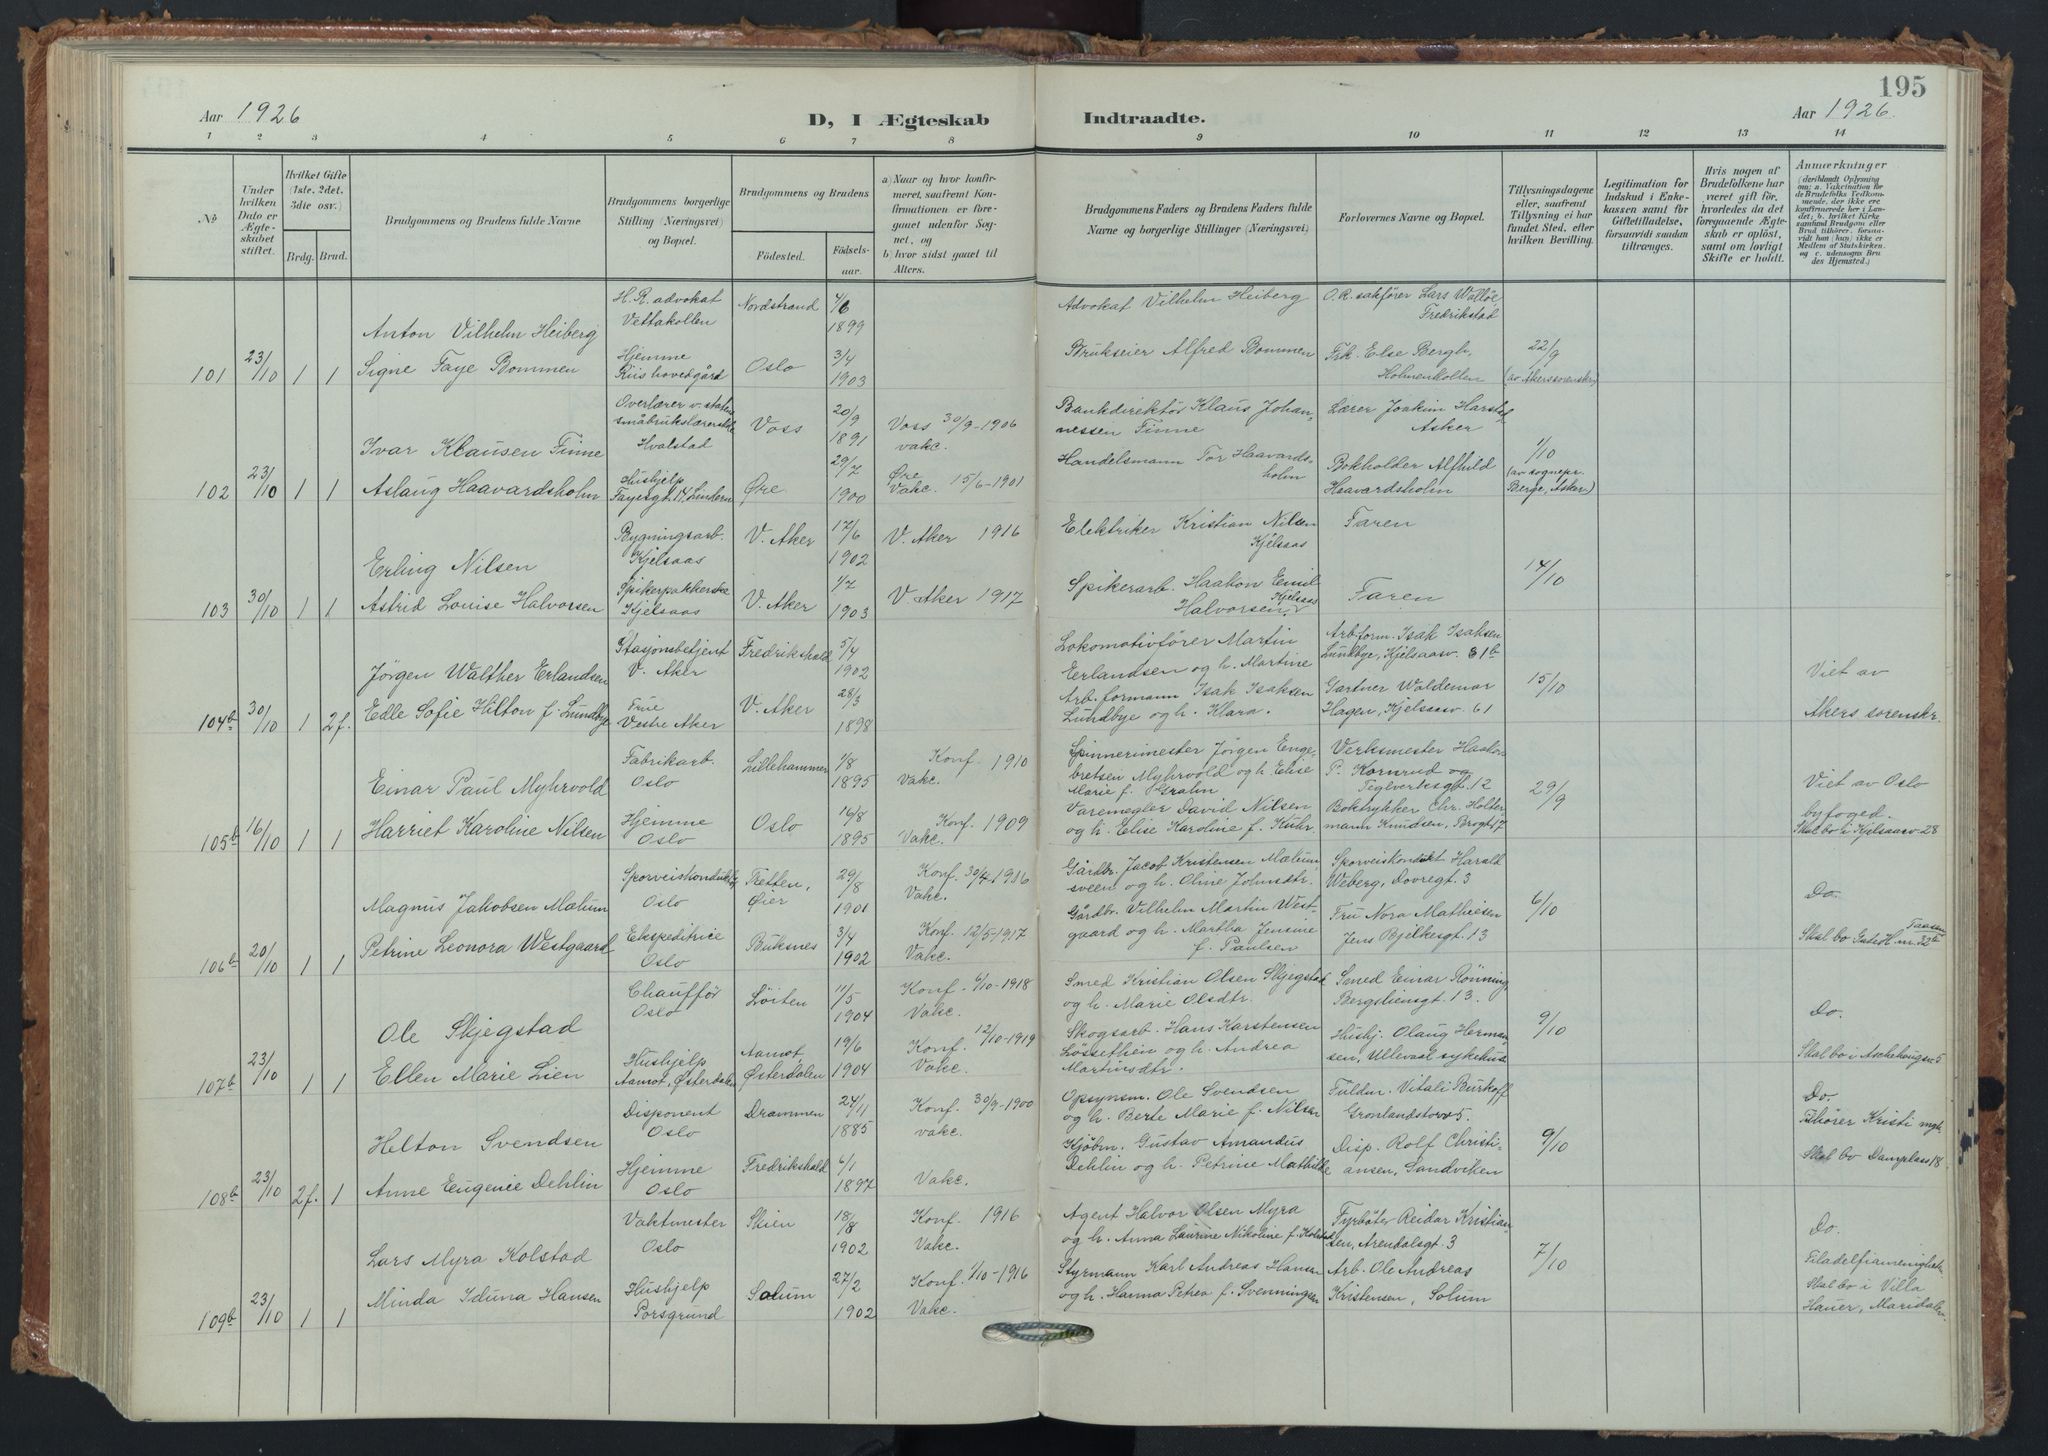 195
Aar 1926
D, I Ægteskab
Indtraadte.
Aar 1926.
1 2 3 4 5 6 7 8 9 10 11 12 13 14
No
Under hvilken Dato er Ægteskabet stiftet.
Hvilket Gifte (1ste, 2det, 3die osv.)
Brdg. Brud.
Brudgommens og Brudens fulde Navne
Brudgommens borgerlige Stilling (Næringsvei) og Bopæl.
Brudgommens og Brudens
Fødested.
Fødselsaar.
a) Naar og hvor konfirmeret, saafremt Konfirmationen er foregaaet udenfor Sognet, og
b) hvor sidst gaaet til Alters.
Brudgommens Faders og Brudens Faders fulde Navne og borgerlige Stillinger (Næringsvei)
Forlovernes Navne og Bopæl.
Tillysningsdagene eller, saafremt Tillysning ei har fundet Sted, efter hvilken Bevilling.
Legitimation for Indskud i Enkekassen samt for Giftetilladelse, forsaavidt saadan tiltrænges.
Hvis nogen af Brudefolkene har været gift før, hvorledes da det foregaaende Ægteskab er opløst, samt om lovligt Skifte er holdt.
Anmærkninger
(deriblandt Oplysning om: a. Vakcination for de Brudefolks Vedkommende, der ikke ere konfirmerede her i Landet; b. hvilket Kirkesamfund Brudgom eller Brud tilhører, forsaavidt han (hun) ikke er Medlem af Statskirken, og c. udensogns Brudes Hjemsted.)
Anton Vilhelm Heiberg
H.R. advokat Vettakollen
Nordstrand
1899
Advokat Vilhelm Heiberg
O.R. sakfører Lars Walløe Fredrikstad
101 23/10 1 1
Signe Faye Bommen
Hjemme Riis hovedgård
Oslo
3/4 1903
Brukseier Alfred Bommen
Frk. Else Bergh, Holmenkollen
22/9 (av Akers sorenskr.)
Ivar Klausen Finne
Overlærer v. statens småbrukslærerskole Hvalstad
Voss
20/9 1891
Voss 30/9-1906 vakc.
Bankdirektør Klaus Johannessen Finne
Lærer Joakim Harstad Asker
102 23/10 1 1
Aslaug Haavardsholm
Hushjelp Fayesgt. 14, Lindern
Øre
29/7 1900
Øre Vakc. 15/6-1901
Handelsmann Tor Haavardsholm
Bokholder Alfhild Haavardsholm
1/10 (av sognepr. Berge, Asker)
Erling Nilsen
Bygningsarb. Kjelsaas
V. Aker
17/6 1902
V. Aker 1916
Elektriker Kristian Nilsen Kjelsaas
Faren
103 30/10 1 1
Astrid Louise Halvorsen
Spikerpakkerske Kjelsaas
V. Aker
1/7 1903
V. Aker 1917
Spikerarb. Haakon Emil Halvorsen, Kjelsaas
Faren
14/10
Jørgen Walther Erlandsen
Stasjonsbetjent V. Aker
Fredrikshald
5/4 1902
Lokomotivfører Martin Erlandsen og h. Martine
Arb.form. Isak Isaksen Lundbye, Kjelsaasv. 61b
104b 30/10 1 2f.
Edle Sofie Hilton f. Lundbye
Frue Vestre Aker
V. Aker
28/3 1898
Arb. formann Isak Isaksen Lundbye og h. Klara.
Gartner Waldemar Hagen, Kjelsaasv. 61
15/10
Viet av Akers sorenskr.
Einar Paul Myhrvold
Fabrikarb. Oslo
Lillehammer
1/8 1895
Konf. 1910 Vakc.
Spinnerimester Jørgen Engebretsen Myhrvold og h. Elise Marie f. Grahn
Verksmester Haakon P. Kornrud og Teglverksgt. 12
105b 16/10 1 1
Harriet Karoline Nilsen
Hjemme Oslo
Oslo
16/8 1895
Konf. 1909 Vakc.
Varemegler David Nilsen og h. Elise Karoline f. Kuhr.
Boktrykker Chr. Holtermann Knudsen, Brogt. 17
29/9
Viet av Oslo byfoged. Skal bo i Kjelsaasv. 28
Magnus Jakobsen Mælum
Sporveiskonduktør Oslo
Tretten, Øier
29/8 1901
Konf. 30/4-1916 Vakc.
Gårdbr. Jacob Kristensen Mælumsveen og h. Oline Johnsdtr.
Sporveiskondukt Harald Weberg, Dovregt. 3
106b 20/10 1 1
Petrine Leonora Westgaard
Ekspeditrice Oslo
Buksnes
3/4 1902
Konf. 12/5-1917 Vakc.
Gårdbr. Vilhelm Martin Westgaard og h. Martha Jensine f. Paulsen
Fru Nora Mathiesen Jens Bjelkesgt. 13
6/10
Do.
Ole Skjegstad
Chauffør Oslo
Løiten
11/5 1904
Konf. 6/10-1918 Vakc.
Smed Kristian Olsen Skjegstad og h. Marie Olsdtr.
Smed Einar Rønning, Bergsliensgt. 13.
107b 23/10 1 1
Ellen Marie Lien
Hushjelp Aamot, Østerdalen
Aamot, Østerdalen
19/6 1904
Konf. 12/10-1919 Vakc.
Skogsarb. Hans Karstensen Løssethien og h. Andrea Martinsdtr.
Hushj. Olaug Hermansen, Ullevaal sykehus
9/10
Do.
Helton Svendsen
Disponent Oslo
Drammen
24/11 1885
Konf. 30/9-1900 vakc.
Opsynsm. Ole Svendsen og h. Berte Marie f. Nilsen
Fuldm. Vitali Burkoff Grønlandstorv 5.
108b 23/10 2f. 1
Anne Eugenie Dehlin
Hjemme Oslo
Fredrikshald
6/1 1897
Vakc.
Kjøbm. Gustav Amandus Dehlin og h. Petrine Mathilde
Disp. Rolf Christiansen, Sandviken
9/10
Do. Tilhører Kristi mgh. Skal bo Damplass 18
Lars Myra Kolstad
Vaktmester Oslo
Skien
18/8 1902
Konf. 1916 Vakc.
Agent Halvor Olsen Myra og h. Anna Laurine Nikoline f. Kolstad
Fyrbøter Reidar Kristiansen, Arendalsgt. 3
109b 23/10 1 1
Minda Iduna Hansen
Hushjelp Porsgrund
Solum
27/2 1902
Konf. 1/10-1916 Vakc.
Styrmann Karl Andreas Hansen og h. Hanna Petrea f. Svenningsen
Arb. Ole Andreas Kristensen, Solum
7/10
Do. Filadelfiamenighet. Skal bo i Villa Hauer, Maridalsv.